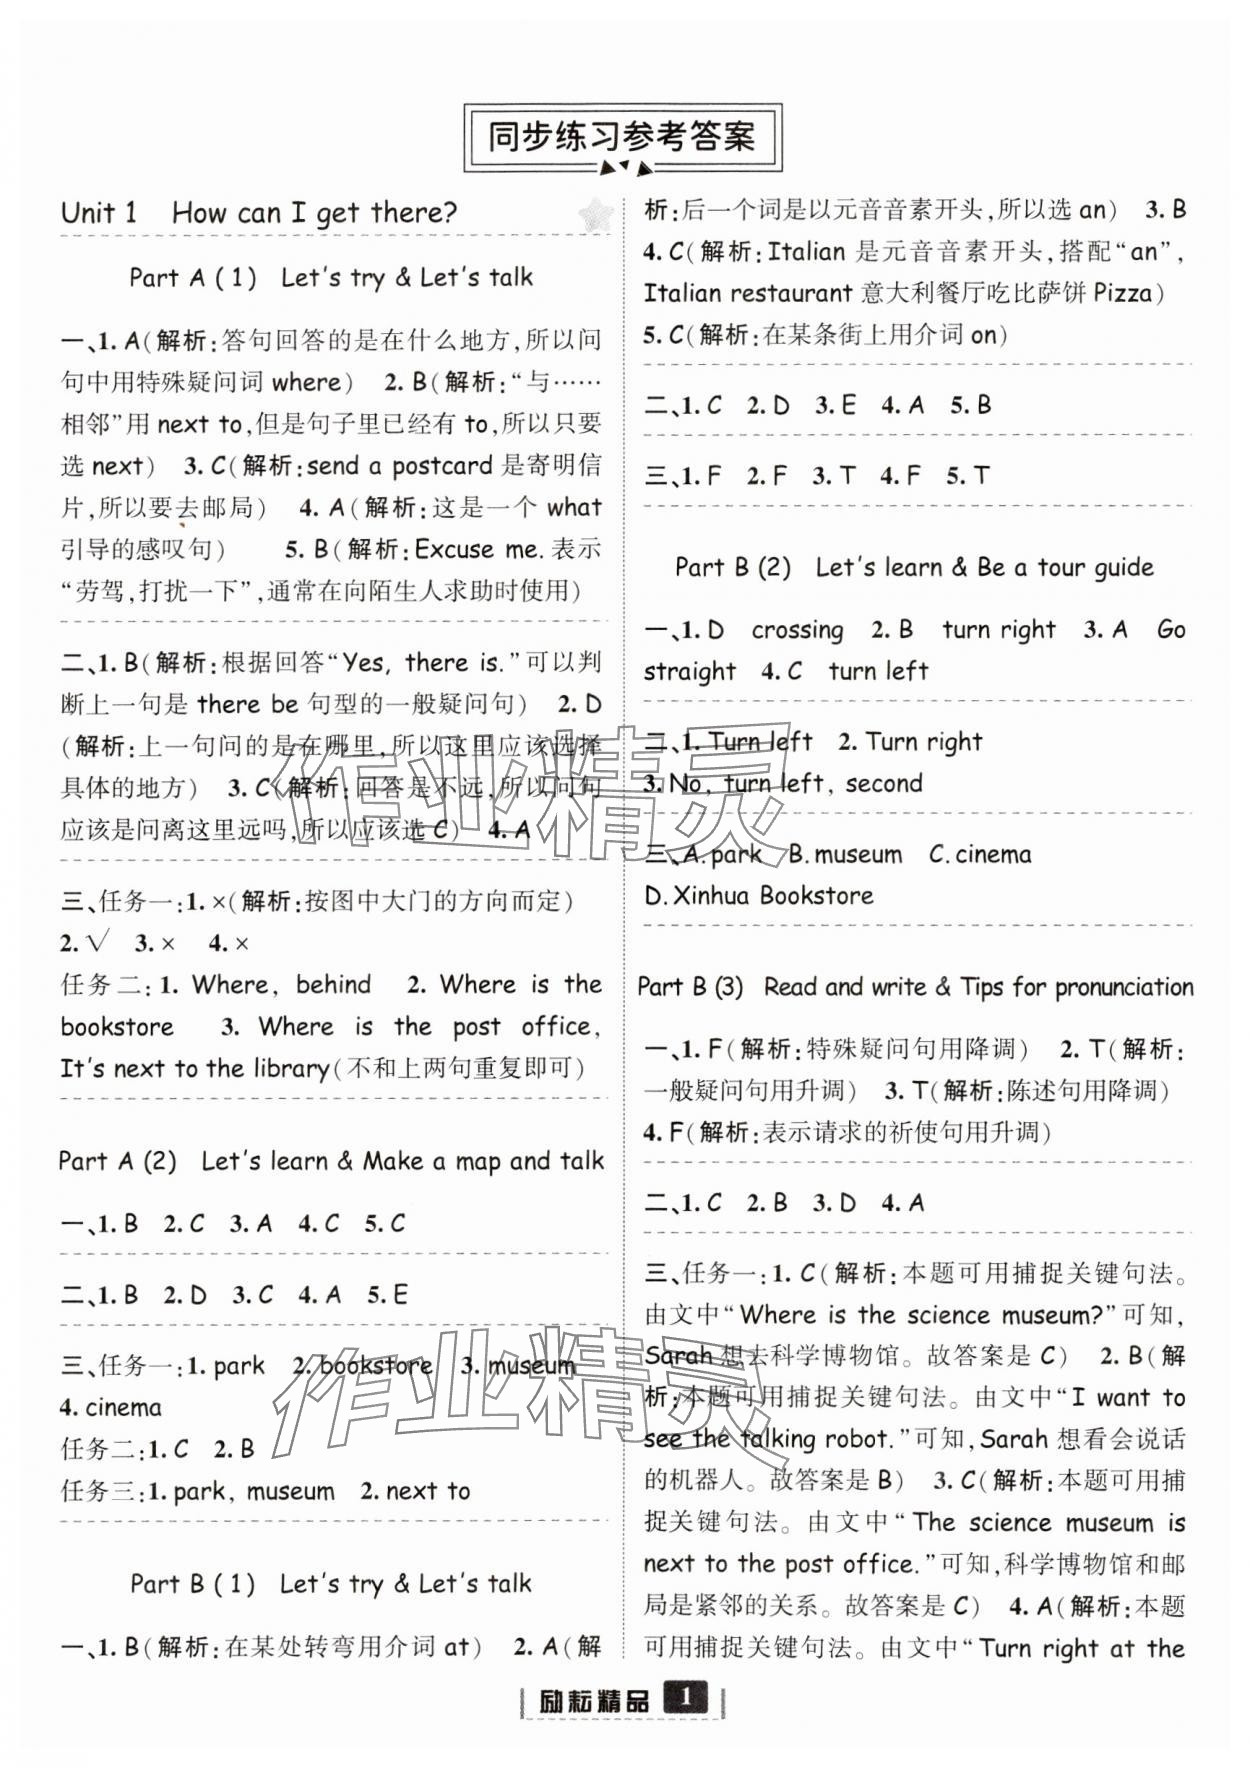 同步练习参考答案
Unit 1 How can I get there?
Part A (1) Let's try & Let's talk
一、1. A(解析:答句回答的是在什么地方,所以问
句中用特殊疑问词 where) 2. B(解析:“与……
相邻”用 next to,但是句子里已经有 to,所以只要
选 next) 3. C(解析:send a postcard 是寄明信
片,所以要去邮局) 4. A(解析:这是一个 what
引导的感叹句) 5. B(解析:Excuse me. 表示
“劳驾,打扰一下”,通常在向陌生人求助时使用)
二、1. B(解析:根据回答“Yes, there is.”可以判
断上一句是 there be 句型的一般疑问句) 2. D
(解析:上一句问的是在哪里,所以这里应该选择
具体的地方) 3. C(解析:回答是不远,所以问句
应该是问离这里远吗,所以应该选 C) 4. A
三、任务一:1. ×(解析:按图中大门的方向而定)
2. √ 3. × 4. ×
任务二:1. Where, behind 2. Where is the
bookstore 3. Where is the post office,
It's next to the library(不和上两句重复即可)
Part A (2) Let's learn & Make a map and talk
一、1. B 2. C 3. A 4. C 5. C
二、1. B 2. D 3. C 4. A 5. E
三、任务一:1. park 2. bookstore 3. museum
4. cinema
任务二:1. C 2. B
任务三:1. park, museum 2. next to
Part B (1) Let's try & Let's talk
一、1. B(解析:在某处转弯用介词 at) 2. A(解
析:后一个词是以元音音素开头,所以选 an) 3. B
4. C(解析:Italian 是元音音素开头,搭配“an”,
Italian restaurant 意大利餐厅吃比萨饼 Pizza)
5. C(解析:在某条街上用介词 on)
二、1. C 2. D 3. E 4. A 5. B
三、1. F 2. F 3. T 4. F 5. T
Part B (2) Let's learn & Be a tour guide
一、1. D crossing 2. B turn right 3. A Go
straight 4. C turn left
二、1. Turn left 2. Turn right
3. No, turn left, second
三、A. park B. museum C. cinema
D. Xinhua Bookstore
Part B (3) Read and write & Tips for pronunciation
一、1. F(解析:特殊疑问句用降调) 2. T(解析:
一般疑问句用升调) 3. T(解析:陈述句用降调)
4. F(解析:表示请求的祈使句用升调)
二、1. C 2. B 3. D 4. A
三、任务一:1. C(解析:本题可用捕捉关键句法。
由文中“Where is the science museum?”可知,
Sarah 想去科学博物馆。故答案是 C) 2. B(解
析:本题可用捕捉关键句法。由文中“I want to
see the talking robot.”可知,Sarah 想看会说话
的机器人。故答案是 B) 3. C(解析:本题可用捕
捉关键句法。由文中“The science museum is
next to the post office.”可知,科学博物馆和邮
局是紧邻的关系。故答案是 C) 4. A(解析:本题
可用捕捉关键句法。由文中“Turn right at the
励耘精品 1
作业精灵
作业精灵